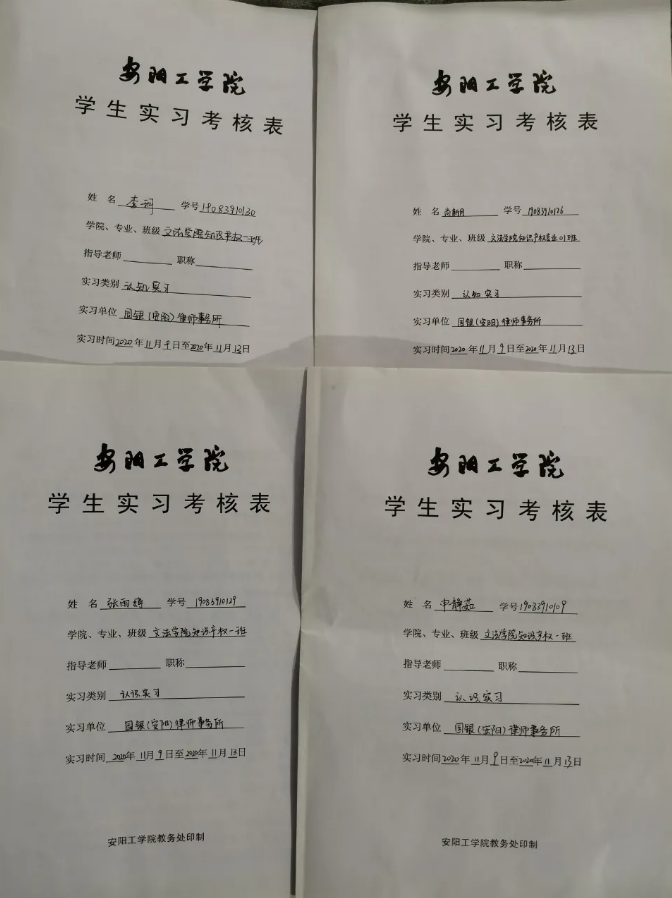 安阳工学院
学生实习考核表
姓 名 李珂 学号 19083910130
学院、专业、班级 文法学院知识产权一班
指导老师 职称
实习类别 认知实习
实习单位 国银(安阳)律师事务所
实习时间2020年11月9日至2020年11月13日
安阳工学院
学生实习考核表
姓 名 学号 19083910126
学院、专业、班级 文法学院知识产权专业01班
指导老师 职称
实习类别 认知实习
实习单位 国银(安阳)律师事务所
实习时间2020年11月9日至2020年11月13日
安阳工学院
学生实习考核表
姓 名 张雨 学号 19083910129
学院、专业、班级 文法学院知识产权一班
指导老师 职称
实习类别 认识实习
实习单位 国银(安阳)律师事务所
实习时间 2020年11月9日至2020年11月13日
安阳工学院教务处印制
安阳工学院
学生实习考核表
姓 名 申静茹 学号19083910109
学院、专业、班级 文法学院知识产权一班
指导老师 职称
实习类别 认识实习
实习单位 国银(安阳)律师事务所
实习时间2020年11月9日至2020年11月13日
安阳工学院教务处印制